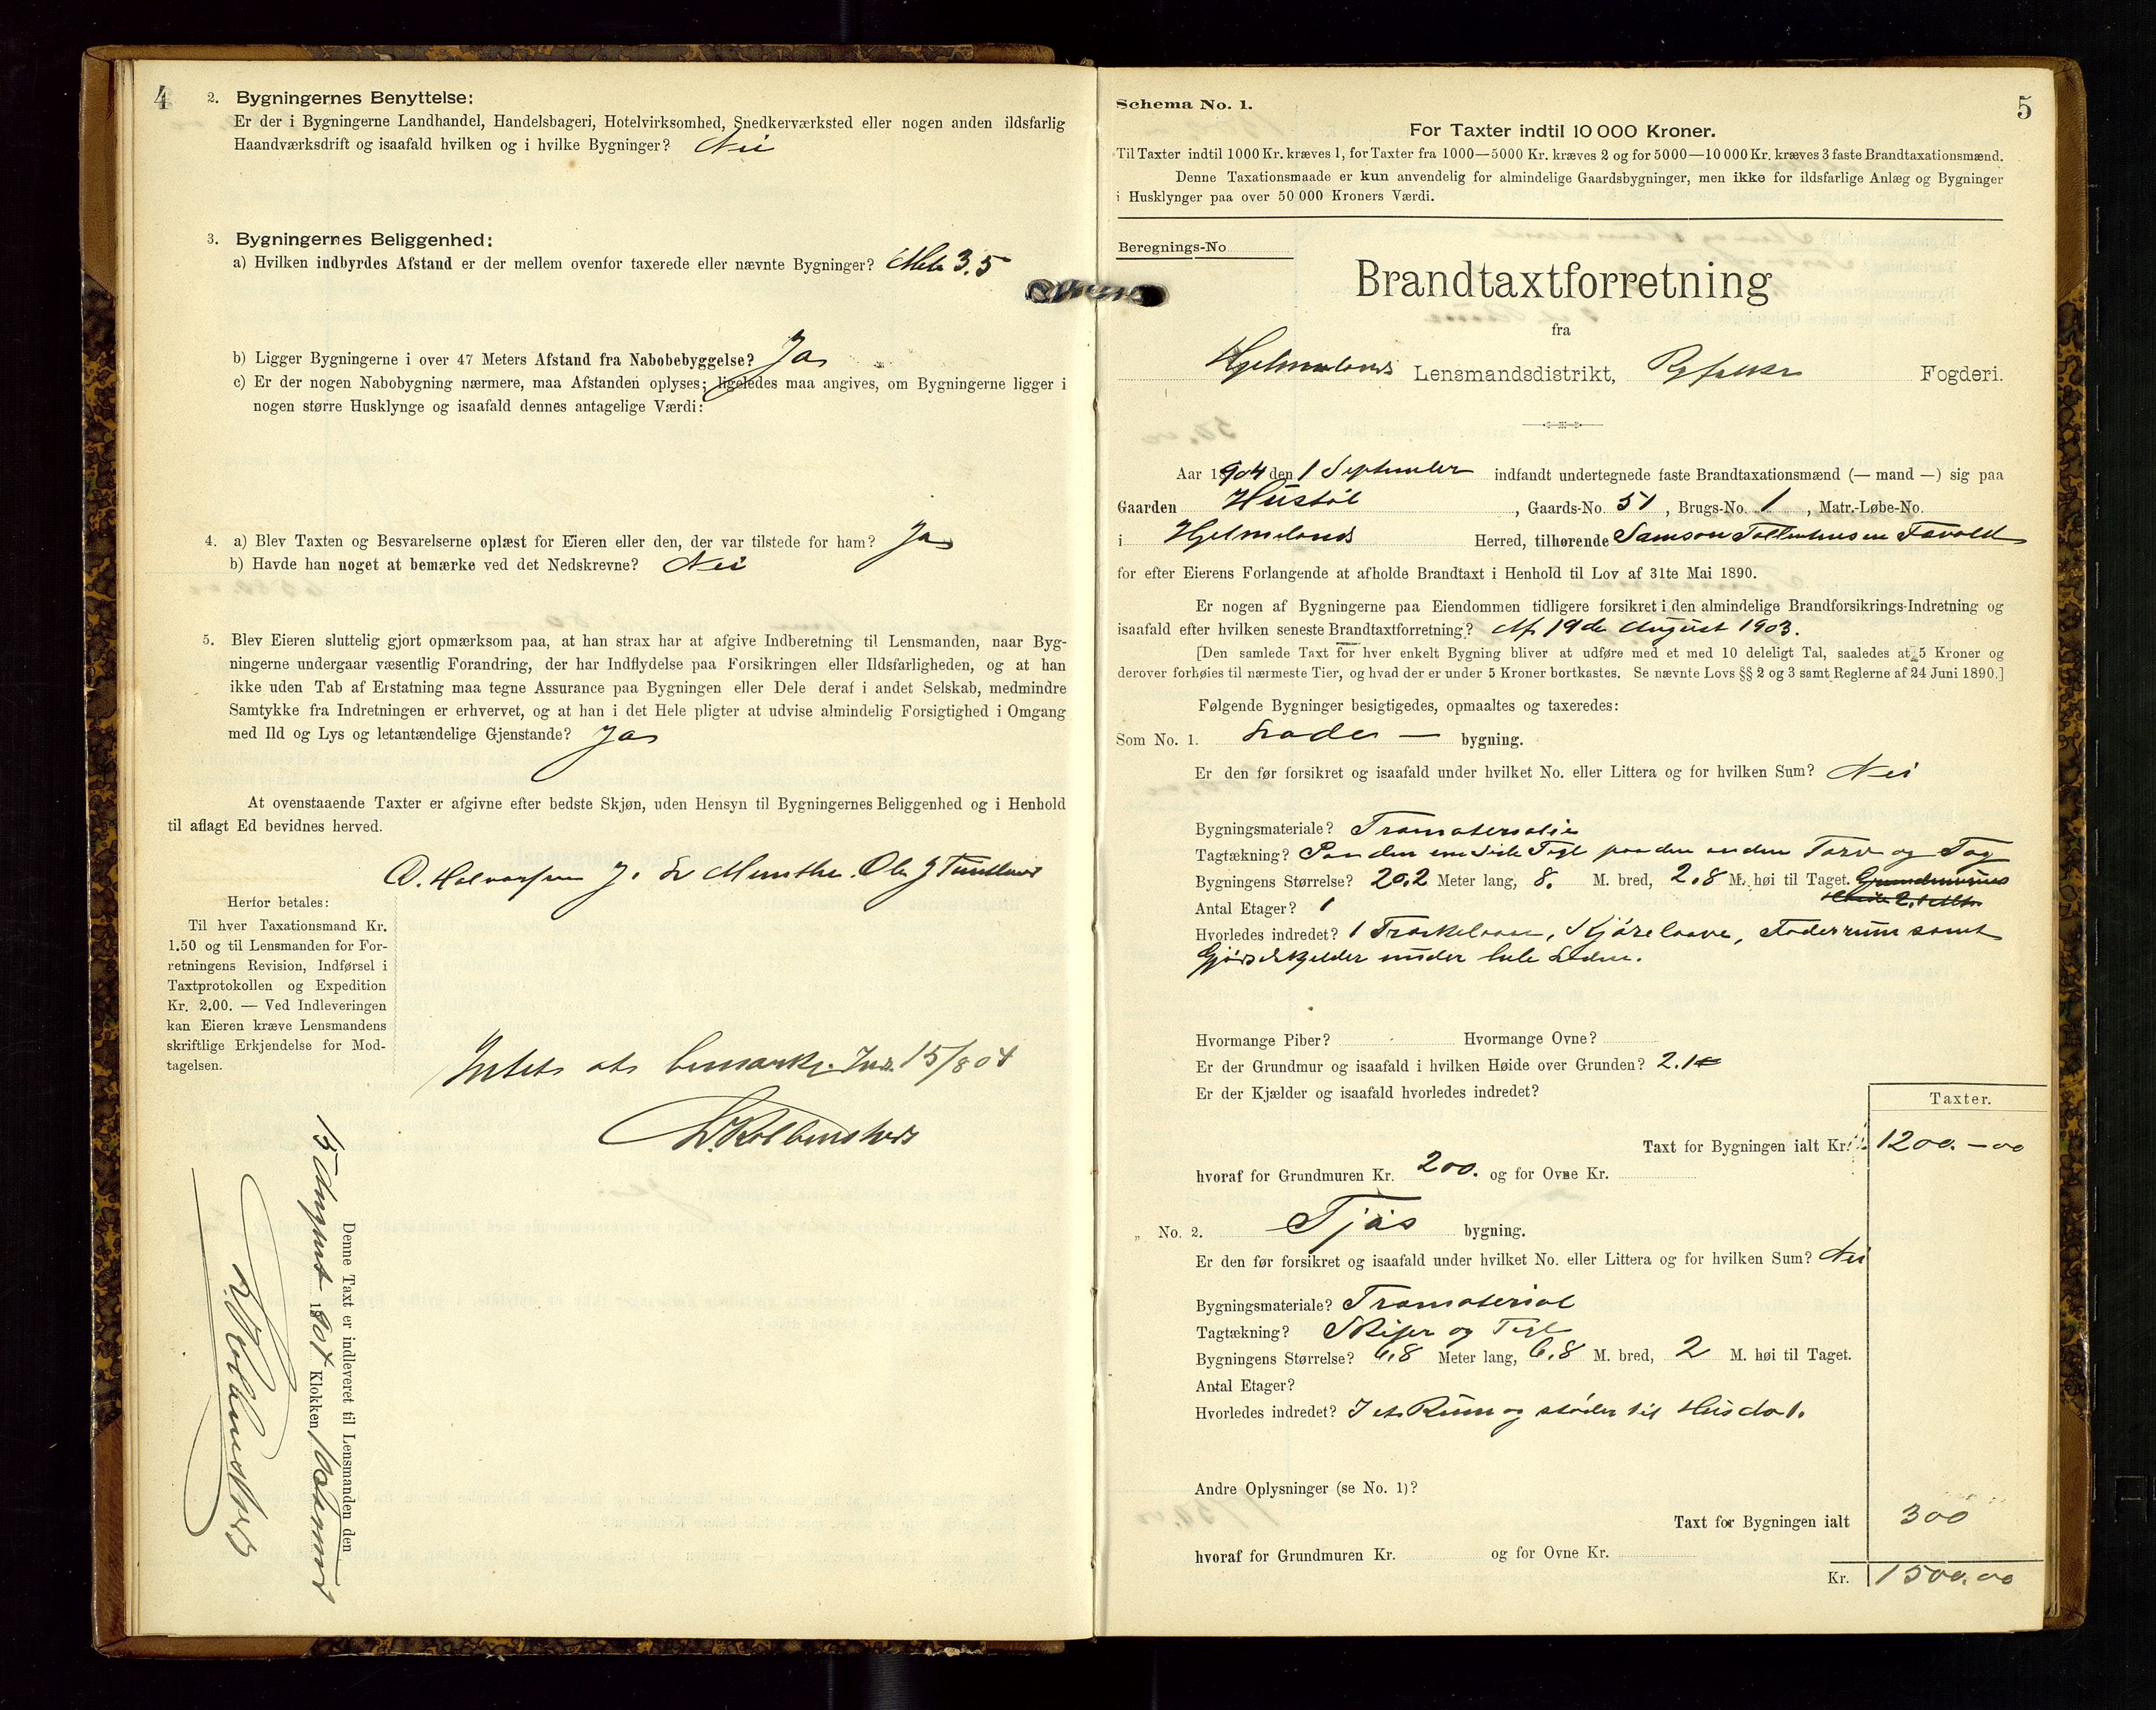 4
2. Bygningernes Benyttelse:
Er der i Bygningerne Landhandel, Handelsbageri, Hotelvirksomhed, Snedkerværksted eller nogen anden ildsfarlig
Haandværksdrift og isaafald hvilken og i hvilke Bygninger? Nei
3. Bygningernes Beliggenhed:
a) Hvilken indbyrdes Afstand er der mellem ovenfor taxerede eller nævnte Bygninger? Mtr 3.5
b) Ligger Bygningerne i over 47 Meters Afstand fra Nabobebyggelse? Ja
c) Er der nogen Nabobygning nærmere, maa Afstanden oplyses; ligeledes maa angives, om Bygningerne ligger i
nogen større Husklynge og isaafald dennes antagelige Værdi:
4. a) Blev Taxten og Besvarelserne oplæst for Eieren eller den, der var tilstede for ham? Ja
b) Havde han noget at bemærke ved det Nedskrevne? Nei
5. Blev Eieren sluttelig gjort opmærksom paa, at han strax har at afgive Indberetning til Lensmanden, naar Byg-
ningerne undergaar væsentlig Forandring, der har Indflydelse paa Forsikringen eller Ildsfarligheden, og at han
ikke uden Tab af Erstatning maa tegne Assurance paa Bygningen eller Dele deraf i andet Selskab, medmindre
Samtykke fra Indretningen er erhvervet, og at han i det Hele pligter at udvise almindelig Forsigtighed i Omgang
med Ild og Lys og letantændelige Gjenstande? Ja
At ovenstaaende Taxter er afgivne efter bedste Skjøn, uden Hensyn til Bygningernes Beliggenhed og i Henhold
til aflagt Ed bevidnes herved.
O. Halvorsen J. Munthe. Ole J
Herfor betales:
Til hver Taxationsmand Kr.
1.50 og til Lensmanden for For-
retningens Revision, Indførsel i
Taxtprotokollen og Expedition
Kr. 2.00. — Ved Indleveringen
kan Eieren kræve Lensmandens
skriftlige Erkjendelse for Mod-
tagelsen.
Intet at bemærke. 15/8 04
Denne Taxt er indleveret til Lensmanden den
15 August 1904 Klokken
5
Schema No. 1.
For Taxter indtil 10 000 Kroner.
Til Taxter indtil 1000 Kr. kræves 1, for Taxter fra 1000—5000 Kr. kræves 2 og for 5000—10 000 Kr. kræves 3 faste Brandtaxationsmænd.
Denne Taxationsmaade er kun anvendelig for almindelige Gaardsbygninger, men ikke for ildsfarlige Anlæg og Bygninger
i Husklynger paa over 50 000 Kroners Værdi.
Beregnings-No
Brandtaxtforretning
fra
Hjelmelands Lensmandsdistrikt, Ryfylke Fogderi.
Aar 1904 den 1 September indfandt undertegnede faste Brandtaxationsmænd (— mand —) sig paa
Gaarden Hustøl, Gaards-No. 51, Brugs-No. 1, Matr.-Løbe-No.
i Hjelmelands Herred, tilhørende Samson
for efter Eierens Forlangende at afholde Brandtaxt i Henhold til Lov af 31te Mai 1890.
Er nogen af Bygningerne paa Eiendommen tidligere forsikret i den almindelige Brandforsikrings-Indretning og
isaafald efter hvilken seneste Brandtaxtforretning? Af 19de August 1903.
[Den samlede Taxt for hver enkelt Bygning bliver at udføre med et med 10 deleligt Tal, saaledes at 5 Kroner og
derover forhøies til nærmeste Tier, og hvad der er under 5 Kroner bortkastes. Se nævnte Lovs §§ 2 og 3 samt Reglerne af 24 Juni 1890.]
Følgende Bygninger besigtigedes, opmaaltes og taxeredes:
Som No. 1. Lade — bygning.
Er den før forsikret og isaafald under hvilket No. eller Littera og for hvilken Sum? Nei
Bygningsmateriale? Træmateriale
Tagtækning? Paa den ene Side Tegl paa den anden Torv og Tag
Bygningens Størrelse? 20.2 Meter lang, 8. M. bred, 2.8 M. høi til Taget.
Antal Etager? 1
Hvorledes indredet? 1 Træskelaave, Kjørelaave, Foderrum samt
Gjødselkjelder under hele Laden.
Hvormange Piber? Hvormange Ovne?
Er der Grundmur og isaafald i hvilken Høide over Grunden? 2.1
Er der Kjælder og isaafald hvorledes indredet?
Taxter.
Taxt for Bygningen ialt Kr. 1200.—00
hvoraf for Grundmuren Kr. 200. og for Ovne Kr.
„ No. 2. Fjøs bygning.
Er den før forsikret og isaafald under hvilket No. eller Littera og for hvilken Sum? Nei
Bygningsmateriale? Træmaterial
Tagtækning? Skifer og Tegl
Bygningens Størrelse? 6,8 Meter lang, 6.8 M. bred, 2 M. høi til Taget.
Antal Etager?
Hvorledes indredet? I et Rum og støder til Husdal.
Andre Oplysninger (se No. 1)?
Taxt for Bygningen ialt 300
hvoraf for Grundmuren Kr. og for Ovne Kr.
Kr. 1500.00